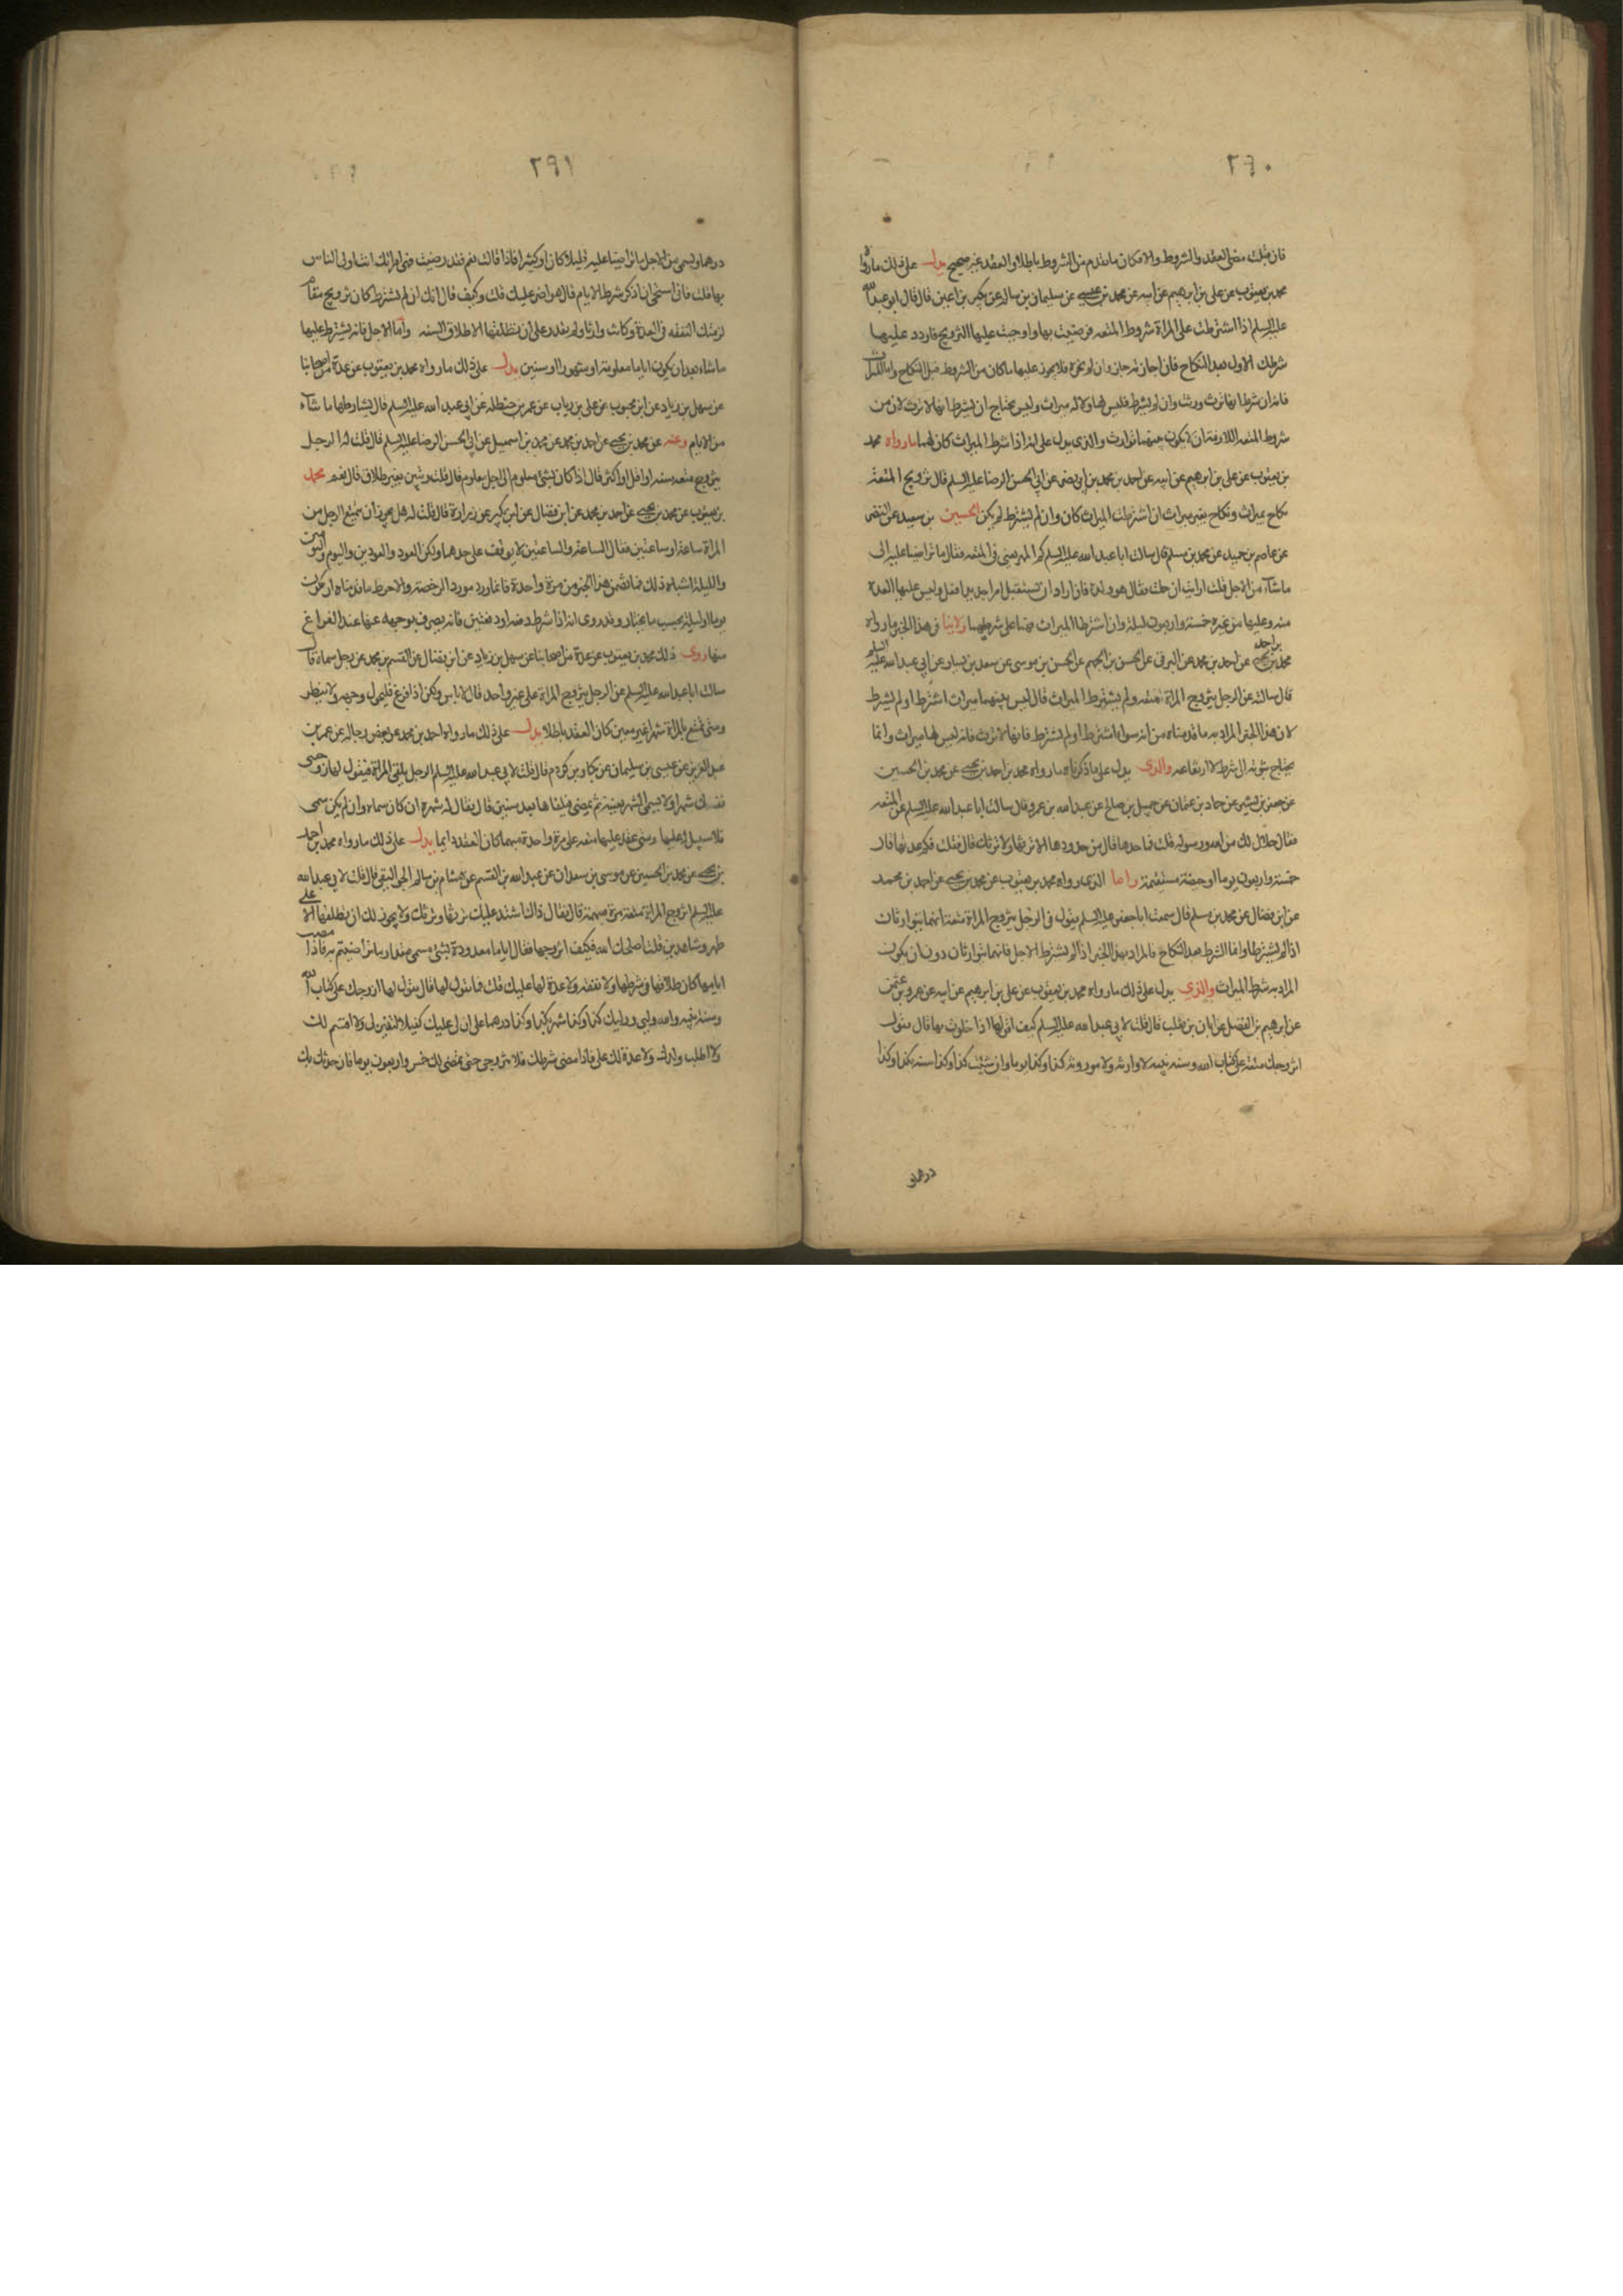 ٢٩٠
فان قبلت مضى العقد والشروط والا فكان ما تقدم من الشروط باطلا والعقد غير صحيح يدل على ذلك ما رواه
محمد بن يعقوب عن علي بن ابرهيم عن ابيه عن محمد بن عيسى عن سليمان بن سالم عن بكير بن اعين قال قال ابو عبد الله
عليه السلم اذا اشترطت على المراة شروط المتعه فرضيت بها واوجبت عليها التزويج فاردد عليها
شرطك الاول بعد النكاح فان اجازته جاز وان لم تجزه فلا يجوز عليها ما كان من الشروط قبل النكاح واما الميراث
فانه ان شرط انها ترث ورثت وان لم يشرط فليس لها ولا له ميراث وليس يحتاج ان يشرط انها لا ترث لان من
شروط المتعه اللازمة ان لا يكون بينهما توارث والذي يدل على انه اذا شرط الميراث كان لهما ما رواه محمد
بن يعقوب عن علي بن ابرهيم عن ابيه عن احمد بن محمد بن ابي نصر عن ابي الحسن الرضا عليه السلم قال تزويج المتعة
نكاح بميراث ونكاح بغير ميراث ان اشترطت الميراث كان وان لم يشترط لم يكن الحسين بن سعيد عن النضر
عن عاصم بن حميد عن محمد بن مسلم قال سالت ابا عبد الله عليه السلم كم المهر يعني في المتعه فقال ما تراضيا عليه الى
ما شاء من الاجل قلت ارايت ان حملت فقال هو ولده فان اراد ان يستقبل امرا جديدا فعل وليس عليها العدة
منه وعليها من غيره خمسة واربعون ليلة وان اشترطا الميراث فهما على شرطهما ولا ينافي هذا الخبر ما رواه
محمد بن احمد بن يحيى عن احمد بن محمد عن البرقي عن الحسن بن الجهم عن الحسن بن موسى عن سعيد بن يسار عن ابي عبد الله عليه السلم
قال سالته عن الرجل يتزوج المراة متعه ولم يشترط الميراث قال ليس بينهما ميراث اشترط او لم يشترط
لان هذا الخبر المراد به ما قدمناه من انه سواء اشترط او لم يشترط فانها لا ترث فانه ليس لها ميراث وانما
يحتاج ثبوته الى شرط لا ارتفاعه والذي يدل على ما ذكرناه ما رواه محمد بن احمد بن يحيى عن محمد بن الحسين
عن جعفر بن بشير عن حماد بن عثمان عن جميل بن صالح عن عبد الله بن عمرو قال سالت ابا عبد الله عليه السلم عن المتعه
فقال حلال لك من الله ورسوله قلت فما حدها قال من حدودها الا ترثها ولا ترثك قال فقلت فكم عدتها قال
خمسة واربعون يوما او حيضة مستقيمة واما الذي رواه محمد بن يعقوب عن محمد بن يحيى عن احمد بن محمد
عن ابن فضال عن محمد بن مسلم قال سمعت ابا جعفر عليه السلم يقول في الرجل يتزوج المراة متعة انهما يتوارثان
اذا لم يشترطا وانما الشرط بعد النكاح فالمراد بهذا الخبر اذا لم يشترط الاجل فانهما يتوارثان دون ان يكون
المراد به شرط الميراث والذي يدل على ذلك ما رواه محمد بن يعقوب عن علي بن ابرهيم عن ابيه عن عمرو بن عثمن
عن ابرهيم بن الفضل عن ابان بن تغلب قال قلت لابي عبد الله عليه السلم كيف اقول لها اذا خلوت بها قال تقول
اتزوجك متعة على كتاب الله وسنه نبيه لا وارثه ولا موروثه كذا وكذا يوما وان شئت كذا وكذا سنه بكذا وكذا
درهما و
٢٩١
درهما ويسمي من الاجل ما تراضيا عليه قليلا كان او كثيرا فاذا قالت نعم فقد رضيت فهي امراتك وانت اولى الناس
بها قلت فاني استحي ان اذكر شرط الايام قال هو اضر عليك قلت وكيف قال انك ان لم تشترط كان تزويج مقام
لزمتك النفقه في العدة وكانت وارثا ولم تقدر على ان تطلقها الا طلاق السنه واما الاجل فانه يشترط عليها
ما شاء بعد ان يكون اياما معلومة او شهورا او سنين يدل على ذلك ما رواه محمد بن يعقوب عن عدة من اصحابنا
عن سهل بن زياد عن ابن محبوب عن علي بن رياب عن عمر بن حنظله عن ابي عبد الله عليه السلم قال يشارطها ما شاء
من الايام وعنه عن محمد بن يحيى عن احمد بن محمد عن محمد بن اسمعيل عن ابي الحسن الرضا عليه السلم قال قلت له الرجل
يتزوج متعه سنه او اقل او اكثر قال اذا كان بشئ معلوم الى اجل معلوم قال قلت وتبين بغير طلاق قال نعم محمد
بن يعقوب عن محمد بن يحيى عن احمد بن محمد عن ابن فضال عن ابن بكير عن زرارة قال قلت له هل يجوز ان يتمتع الرجل من
المراة ساعة او ساعتين فقال الساعة والساعتين لا يوقف على حدهما ولكن العود والعودين واليوم واليومين
والليلة اشباه ذلك فما تضمن هذا الخبر من مرة واحدة فانما ورد مورد الرخصة والاحوط ما قدمناه او يكون
يوما او ليلة بحسب ما يختار وقد روى انه اذا شرط دفعة او دفعتين فانه يصرف بوجهه عنها عند الفراغ
منها روى ذلك محمد بن يعقوب عن عدة من اصحابنا عن سهل بن زياد عن ابن فضال عن القسم بن محمد عن رجل سماه قال
سالت ابا عبد الله عليه السلم عن الرجل يتزوج المراة على عرد واحد قال لا باس ولكن اذا فرغ فليحول وجهه ولا ينظر
ومتى تمتع بالمراة شهرا غير معين كان العقد باطلا يدل على ذلك ما رواه احمد بن محمد عن بعض رجاله عن عمر بن
عبد العزيز عن عيسى بن سليمان عن بكار بن كردم قال قلت لابي عبد الله عليه السلم الرجل يلقى المراة فيقول لها زوجيني
نفسك شهرا ولا يسمي الشهر بعينه ثم يمضي فيلقاها بعد سنين قال فقال له شهره ان كان سماه وان لم يكن سمى
فلا سبيل له عليها ومتى عقد عليها متعه على مرة واحدة مبهما كان العقد دايما يدل على ذلك ما رواه محمد بن احمد
بن يحيى عن محمد بن الحسين عن موسى بن سعدان عن عبد الله بن القسم عن هشام بن سالم الجواليقي قال قلت لابي عبد الله
عليه السلم اتزوج المراة متعة مرة مبهمة قال فقال ذاك اشد عليك ترثها وترثك ولا يجوز لك ان تطلقها الا على
طهر وشاهدين قلت اصلحك الله فكيف اتزوجها فقال اياما معدودة بشئ مسمى مقدار ما تراضيتم به فاذا مضت
ايامها كان طلاقها في شرطها ولا نفقه ولا عدة لها عليك قلت فما اقول لها قال تقول لها اتزوجك على كتاب الله
وسنة نبيه والله وليي ووليك كذا وكذا شهرا بكذا وكذا درهما على ان لي عليك كفيلا لتفين لي ولا اقسم لك
ولا اطلب ولدك ولا عدة لك علي فاذا مضى شرطك فلا تتزوجي حتى يمضي لك خمس واربعون يوما فان حدث بك